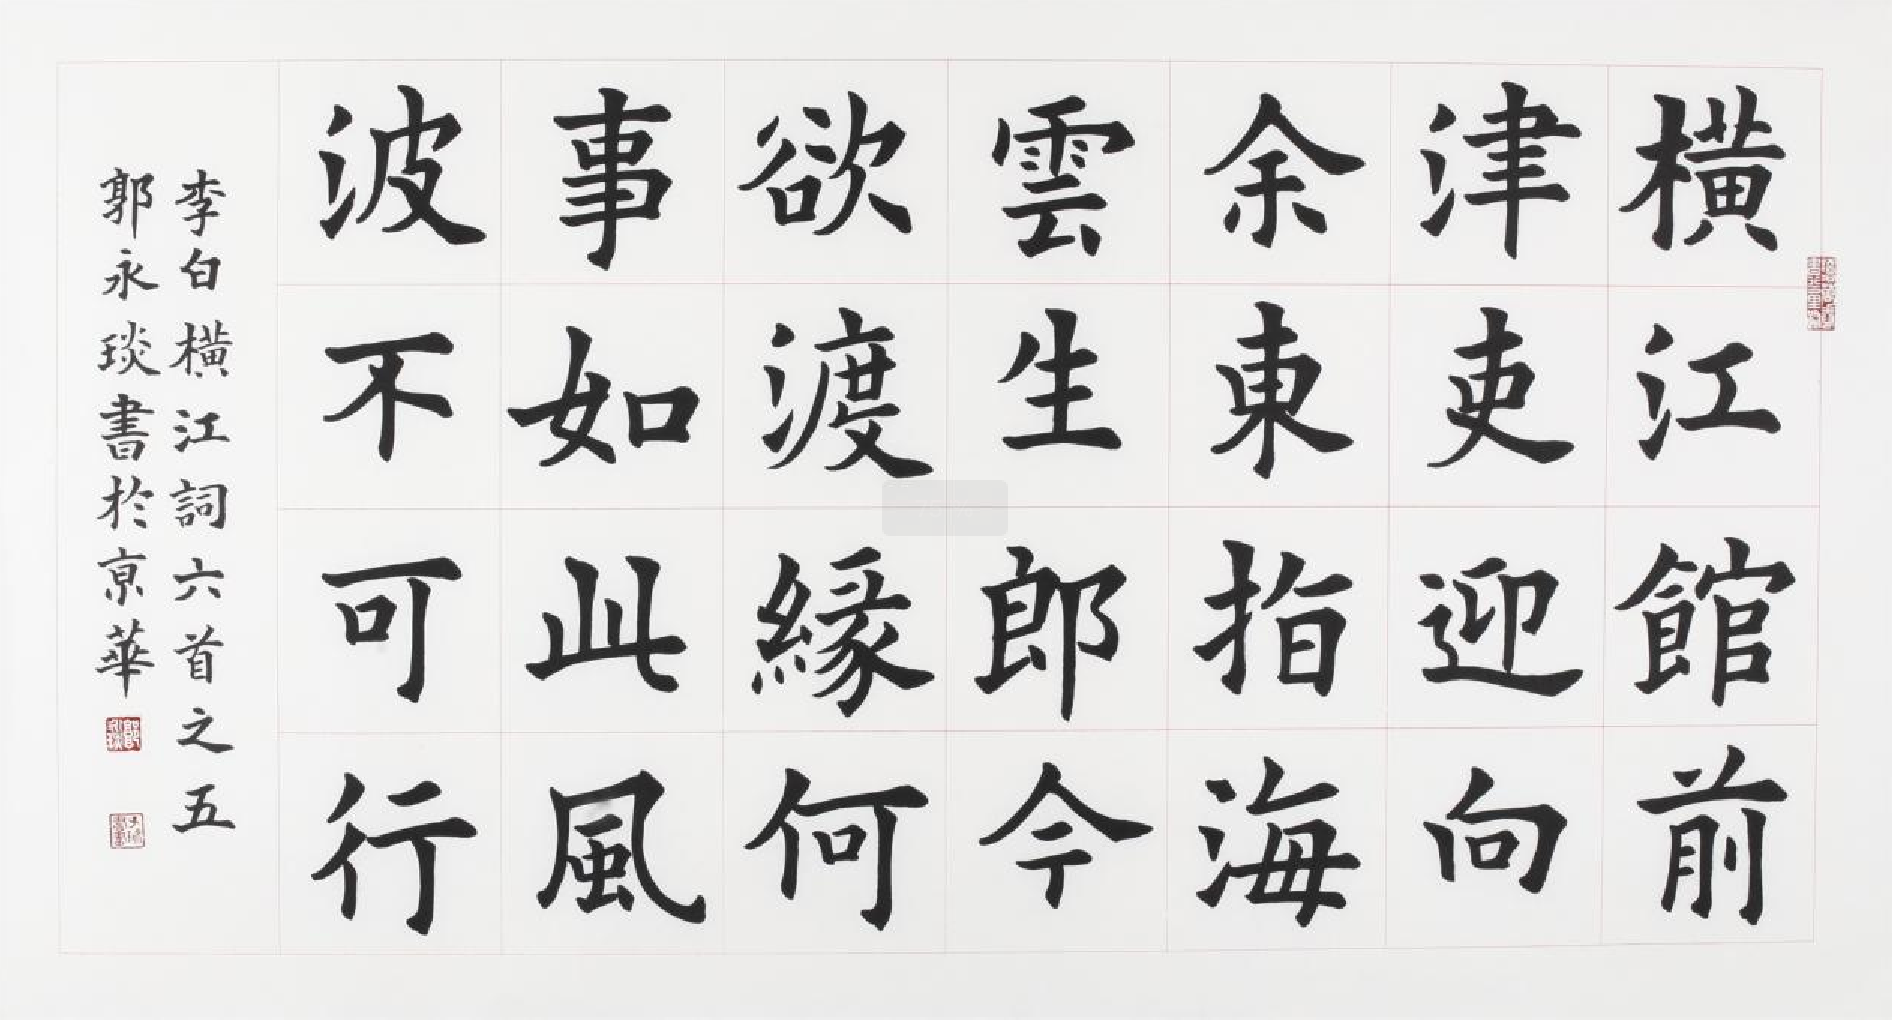 橫江館前
津吏迎向
余東指海
雲生郎今
欲渡緣何
事如此風
波不可行
李白橫江詞六首之五
郭永琰書於京華